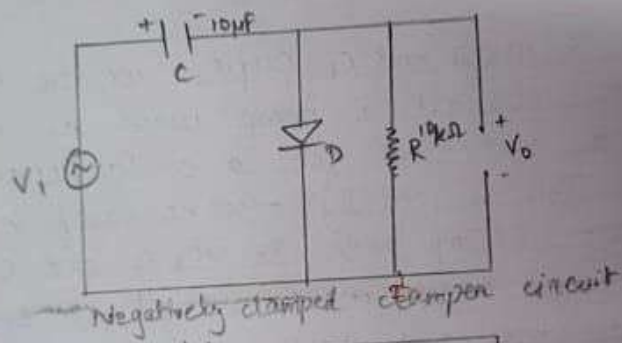 + - 10μF
C
Vi ~
D
R 10kΩ
+
Vo
-
Negatively clamped clamper circuit